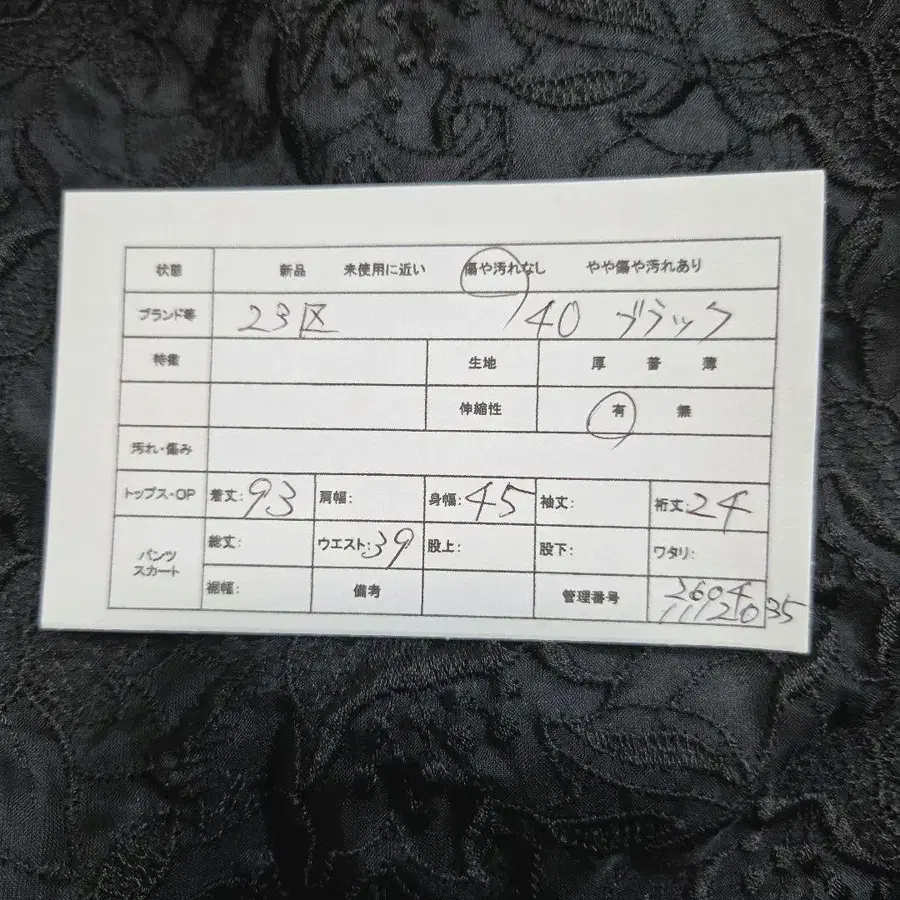 状態 新品 未使用に近い 傷や汚れなし やや傷や汚れあり
ブランド等 23区 40 ブラック
特徴 生地 厚 普 薄
伸縮性 有 無
汚れ・傷み
トップス・OP 着丈:93 肩幅: 身幅:45 袖丈: 裄丈:24
パンツ スカート 総丈: ウエスト:39 股上: 股下: ワタリ:
裾幅: 備考 管理番号 2604
11112035